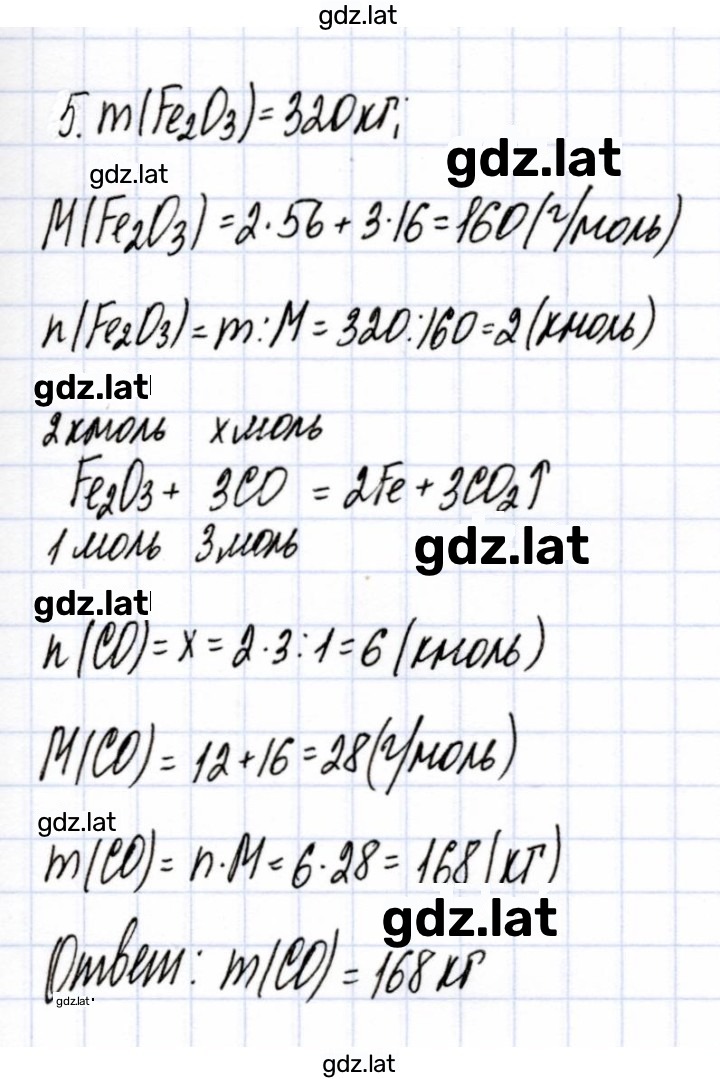 gdz.lat
5. m(Fe₂O₃) = 320 кг;
gdz.lat
gdz.lat
M(Fe₂O₃) = 2·56 + 3·16 = 160 (г/моль)
n(Fe₂O₃) = m : M = 320 : 160 = 2 (кмоль)
gdz.lat
2 кмоль х моль
Fe₂O₃ + 3CO = 2Fe + 3CO₂↑
1 моль 3 моль
gdz.lat
gdz.lat
n(CO) = x = 2·3 : 1 = 6 (кмоль)
M(CO) = 12 + 16 = 28 (г/моль)
gdz.lat
m(CO) = n·M = 6·28 = 168 (кг)
gdz.lat
Ответ: m(CO) = 168 кг
gdz.lat
gdz.lat